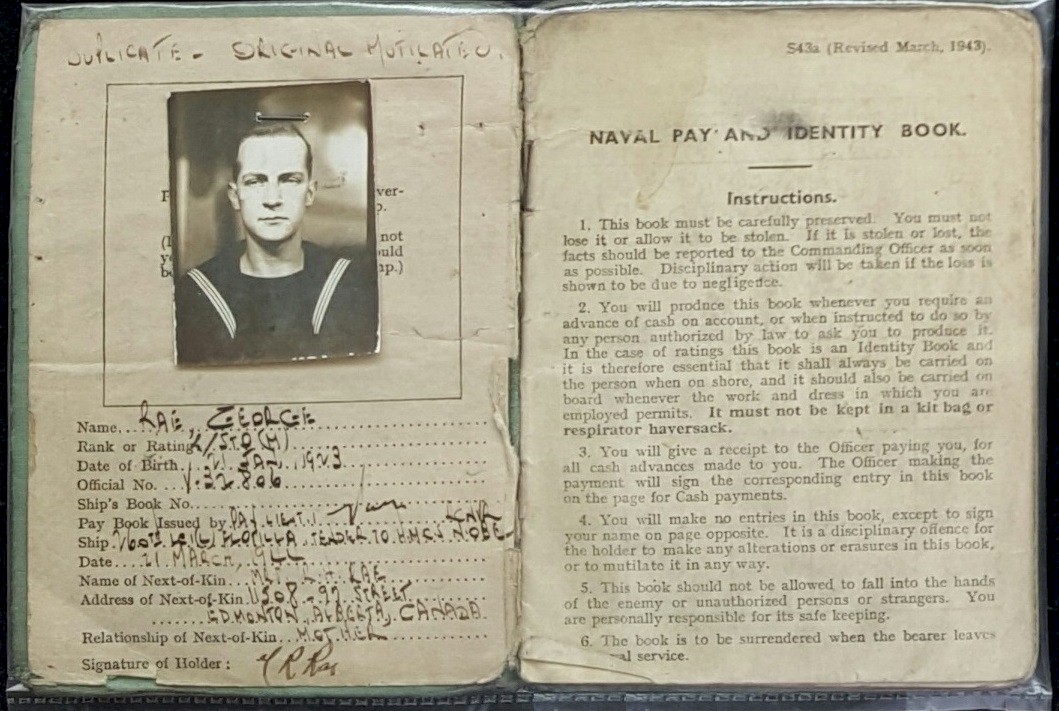 DUPLICATE - ORIGINAL MUTILATED.
ver-
p.
(I not
y ould
b mp.)
Name... RAE, GEORGE
Rank or Rating /STO (M)
Date of Birth 21 JAN. 1923
Official No. V.32806
Ship's Book No.
Pay Book Issued by PAY. LIEUT. RCNVR
Ship 260TH FLOTILLA, TENDER TO HMCS NIOBE
Date 21 MARCH, 1944
Name of Next-of-Kin RAE
Address of Next-of-Kin 11508 - 97 STREET
EDMONTON, ALBERTA, CANADA.
Relationship of Next-of-Kin MOTHER
Signature of Holder : G R Rae
S43a (Revised March, 1943).
NAVAL PAY AND IDENTITY BOOK.
Instructions.
1. This book must be carefully preserved. You must not
lose it or allow it to be stolen. If it is stolen or lost, the
facts should be reported to the Commanding Officer as soon
as possible. Disciplinary action will be taken if the loss is
shown to be due to negligence.
2. You will produce this book whenever you require an
advance of cash on account, or when instructed to do so by
any person authorized by law to ask you to produce it.
In the case of ratings this book is an Identity Book and
it is therefore essential that it shall always be carried on
the person when on shore, and it should also be carried on
board whenever the work and dress in which you are
employed permits. It must not be kept in a kit bag or
respirator haversack.
3. You will give a receipt to the Officer paying you, for
all cash advances made to you. The Officer making the
payment will sign the corresponding entry in this book
on the page for Cash payments.
4. You will make no entries in this book, except to sign
your name on page opposite. It is a disciplinary offence for
the holder to make any alterations or erasures in this book,
or to mutilate it in any way.
5. This book should not be allowed to fall into the hands
of the enemy or unauthorized persons or strangers. You
are personally responsible for its safe keeping.
6. The book is to be surrendered when the bearer leaves
al service.